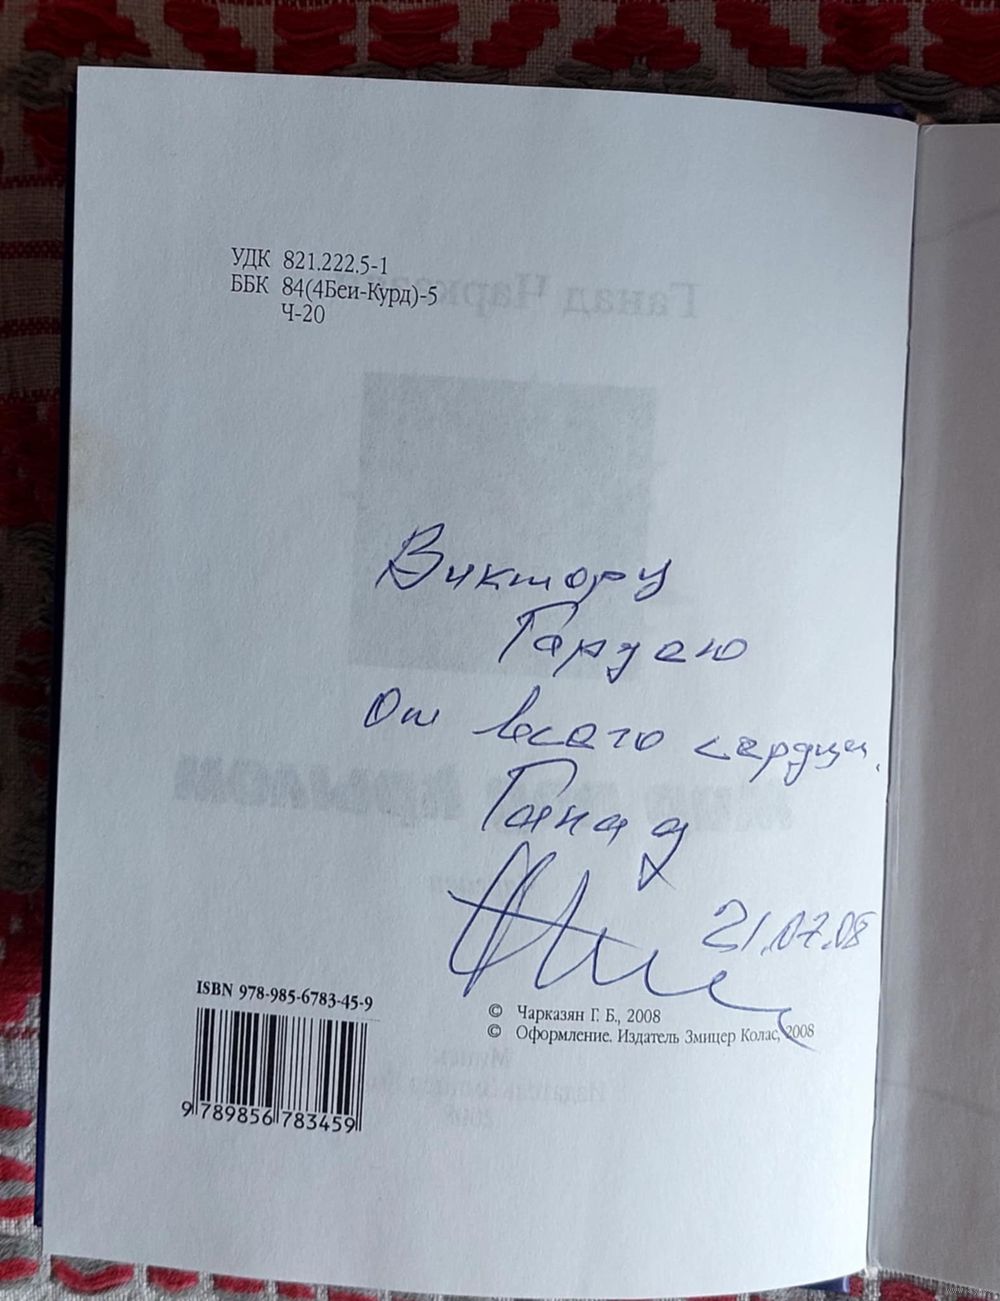 УДК 821.222.5-1
ББК 84(4Беи-Курд)-5
Ч-20
Ганад
Виктору
Гардею
От всего сердца.
Ганад
21.07.08
ISBN 978-985-6783-45-9
© Чарказян Г. Б., 2008
© Оформление. Издатель Змицер Колас, 2008
9 789856 783459